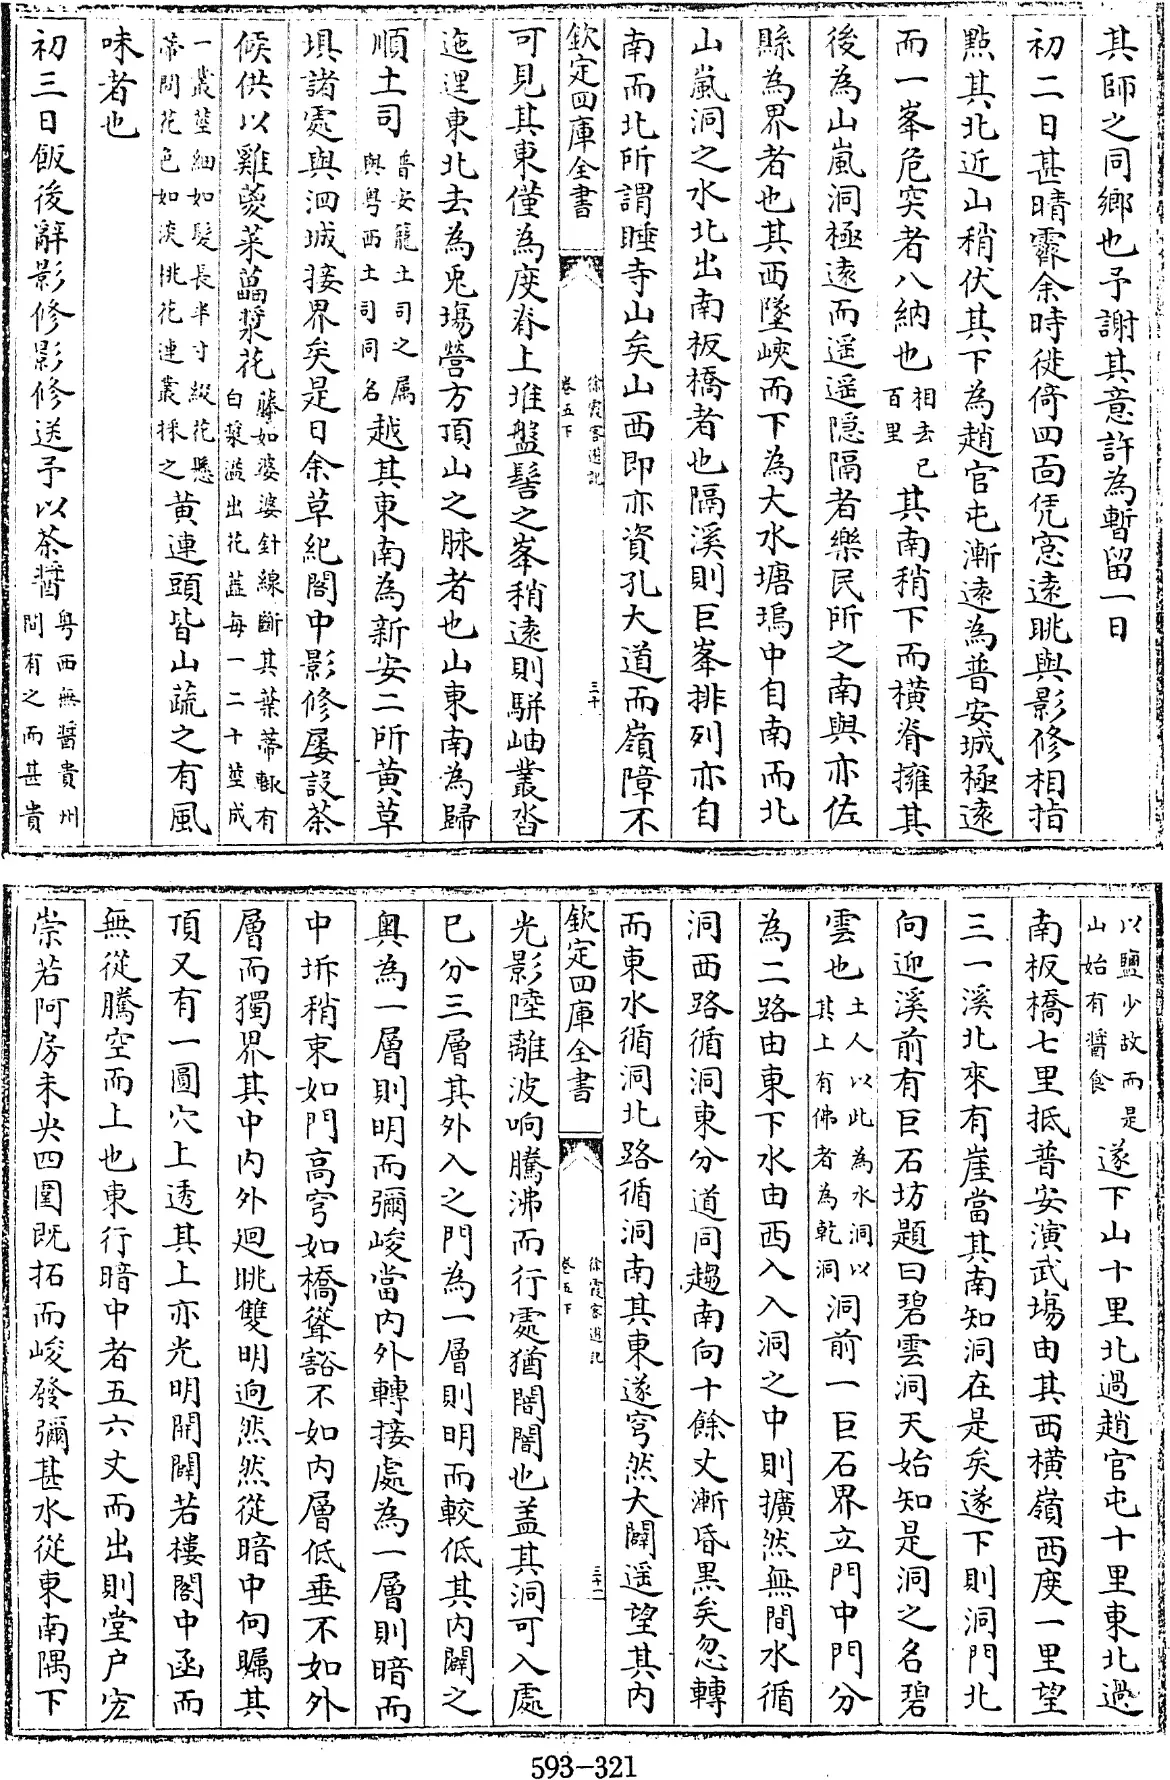 其師之同鄉也予謝其意許為暫留一日
初二日甚晴霽余時徙倚四面凭窓遠眺與影修相指
點其北近山稍伏其下為趙官屯漸遠為普安城極遠
而一峯危突者八納也相去已百里其南稍下而橫脊擁其
後為山嵐洞極遠而遥遥隠隔者樂民所之南與亦佐
縣為界者也其西墜峽而下為大水塘塢中自南而北
山嵐洞之水北出南板橋者也隔溪則巨峯排列亦自
南而北所謂睡寺山矣山西即亦資孔大道而嶺障不
欽定四庫全書
徐霞客遊記
卷五下
三十
可見其東僅為度脊上堆盤髻之峯稍遠則駢岫叢沓
迤逞東北去為兎塲營方頂山之脉者也山東南為歸
順土司普安龍土司之属與粤西土司同名越其東南為新安二所黄草
埧諸處與泗城接界矣是日余草紀閣中影修屡設茶
候供以雞葼菜藠漿花藤如婆婆針線斷其葉蒂輒有白漿溢出花蕋每一二十莖成
一叢莖細如髪長半寸綴花懸蒂間花色如淡桃花連叢採之黄連頭皆山蔬之有風
味者也
初三日飯後辭影修影修送予以茶醬粤西無醬貴州間有之而甚貴
以鹽少故而是山始有醬食遂下山十里北過趙官屯十里東北過
南板橋七里抵普安演武塲由其西橫嶺西度一里望
三一溪北來有崖當其南知洞在是矣遂下則洞門北
向迎溪前有巨石坊題曰碧雲洞天始知是洞之名碧
雲也土人以此為水洞以其上有佛者為乾洞洞前一巨石界立門中門分
為二路由東下水由西入入洞之中則擴然無間水循
洞西路循洞東分道同趨南向十餘丈漸昏黒矣忽轉
而東水循洞北路循洞南其東遂穹然大闢遥望其内
欽定四庫全書
徐霞客遊記
卷五下
三十一
光影陸離波响騰沸而行處猶闇闇也盖其洞可入處
已分三層其外入之門為一層則明而較低其内闢之
奥為一層則明而彌峻當内外轉接處為一層則暗而
中坼稍東如門高穹如橋聳豁不如内層低垂不如外
層而獨界其中内外迴眺雙明逈然然從暗中仰矚其
頂又有一圓穴上透其上亦光明開闢若樓閣中函而
無從騰空而上也東行暗中者五六丈而出則堂户宏
崇若阿房未央四圍既拓而峻發彌甚水從東南隅下
593-321